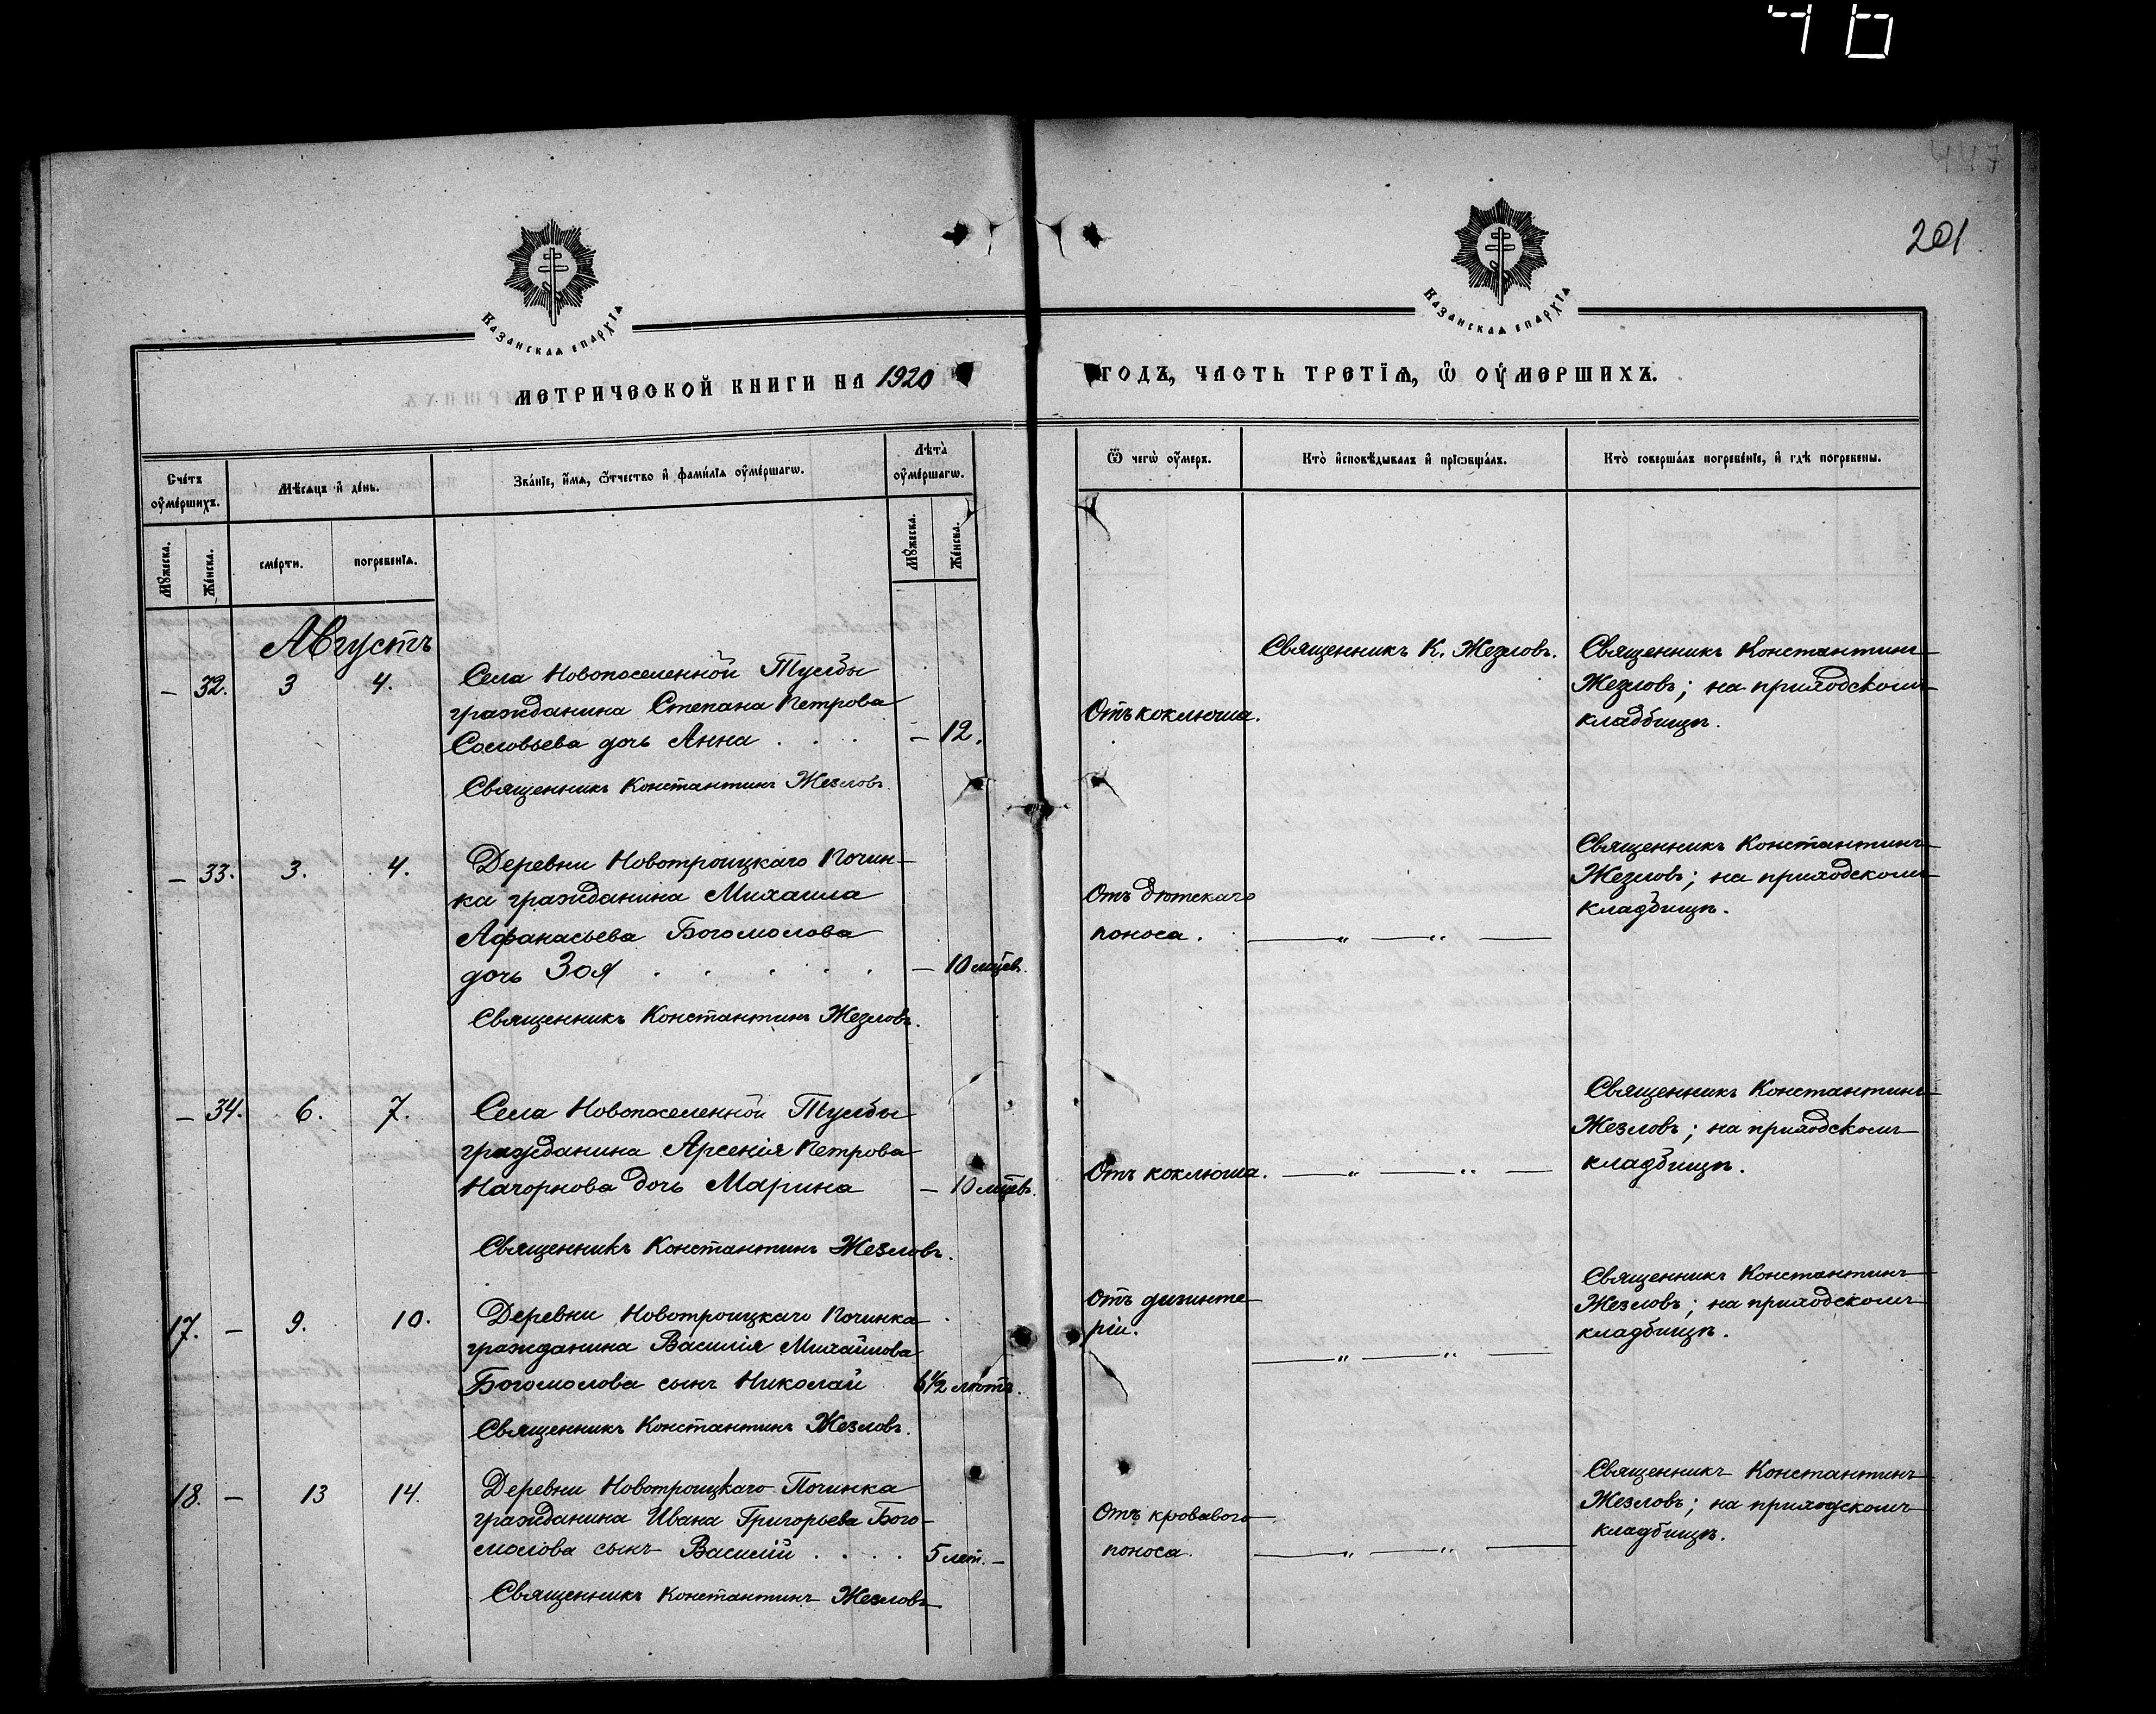 46
447
201
Казанская епархїа
Казанская епархїа
метрической книги на 1920
годъ, часть третїѧ, ѿ оумершихъ.
Счетъ оумершихъ.
Мѣсяцъ и день.
Званїе, имѧ, ѿтчество и фамилїѧ оумершагѡ.
Лѣта оумершагѡ.
Ѿ чегѡ оумеръ.
Кто исповѣдывалъ и прїѡбщалъ.
Кто совершалъ погребенїе, и гдѣ погребены.
Мужеска.
Женска.
смерти.
погребенїѧ.
Мужеска.
Женска.
Августъ
– 32. 3 4.
Села Новопоселенной Тулбы
гражданина Степана Петрова
Соловьева дочь Анна . . . – 12.
Священникъ Константинъ Жезловъ.
Отъ коклюша.
Священникъ К. Жезловъ.
Священникъ Константинъ
Жезловъ; на приходскомъ
кладбищѣ.
– 33. 3. 4.
Деревни Новотроицкаго Почин-
ка гражданина Михаила
Афанасьева Богомолова
дочь Зоя . . . . . – 10 мцев.
Священникъ Константинъ Жезловъ.
Отъ дѣтскаго
поноса.
— „ — „ —
Священникъ Константинъ
Жезловъ; на приходскомъ
кладбищѣ.
– 34. 6. 7.
Села Новопоселенной Тулбы
гражданина Арсенія Петрова
Начорнова дочь Марина – 10 мцевъ.
Священникъ Константинъ Жезловъ.
Отъ коклюша.
— „ — „ —
Священникъ Константинъ
Жезловъ; на приходскомъ
кладбищѣ.
17. – 9. 10.
Деревни Новотроицкаго Починка
гражданина Василія Михайлова
Богомолова сынъ Николай 6½ лѣтъ.
Священникъ Константинъ Жезловъ.
Отъ дизинте
ріи.
— „ — „ —
Священникъ Константинъ
Жезловъ; на приходскомъ
кладбищѣ.
18. – 13 14.
Деревни Новотроицкаго Починка
гражданина Ивана Григорьева Бого-
молова сынъ Василій . . . . 5 лет. –
Священникъ Константинъ Жезловъ
Отъ кроваваго
поноса.
— „ — „ —
Священникъ Константинъ
Жезловъ; на приходскомъ
кладбищѣ.